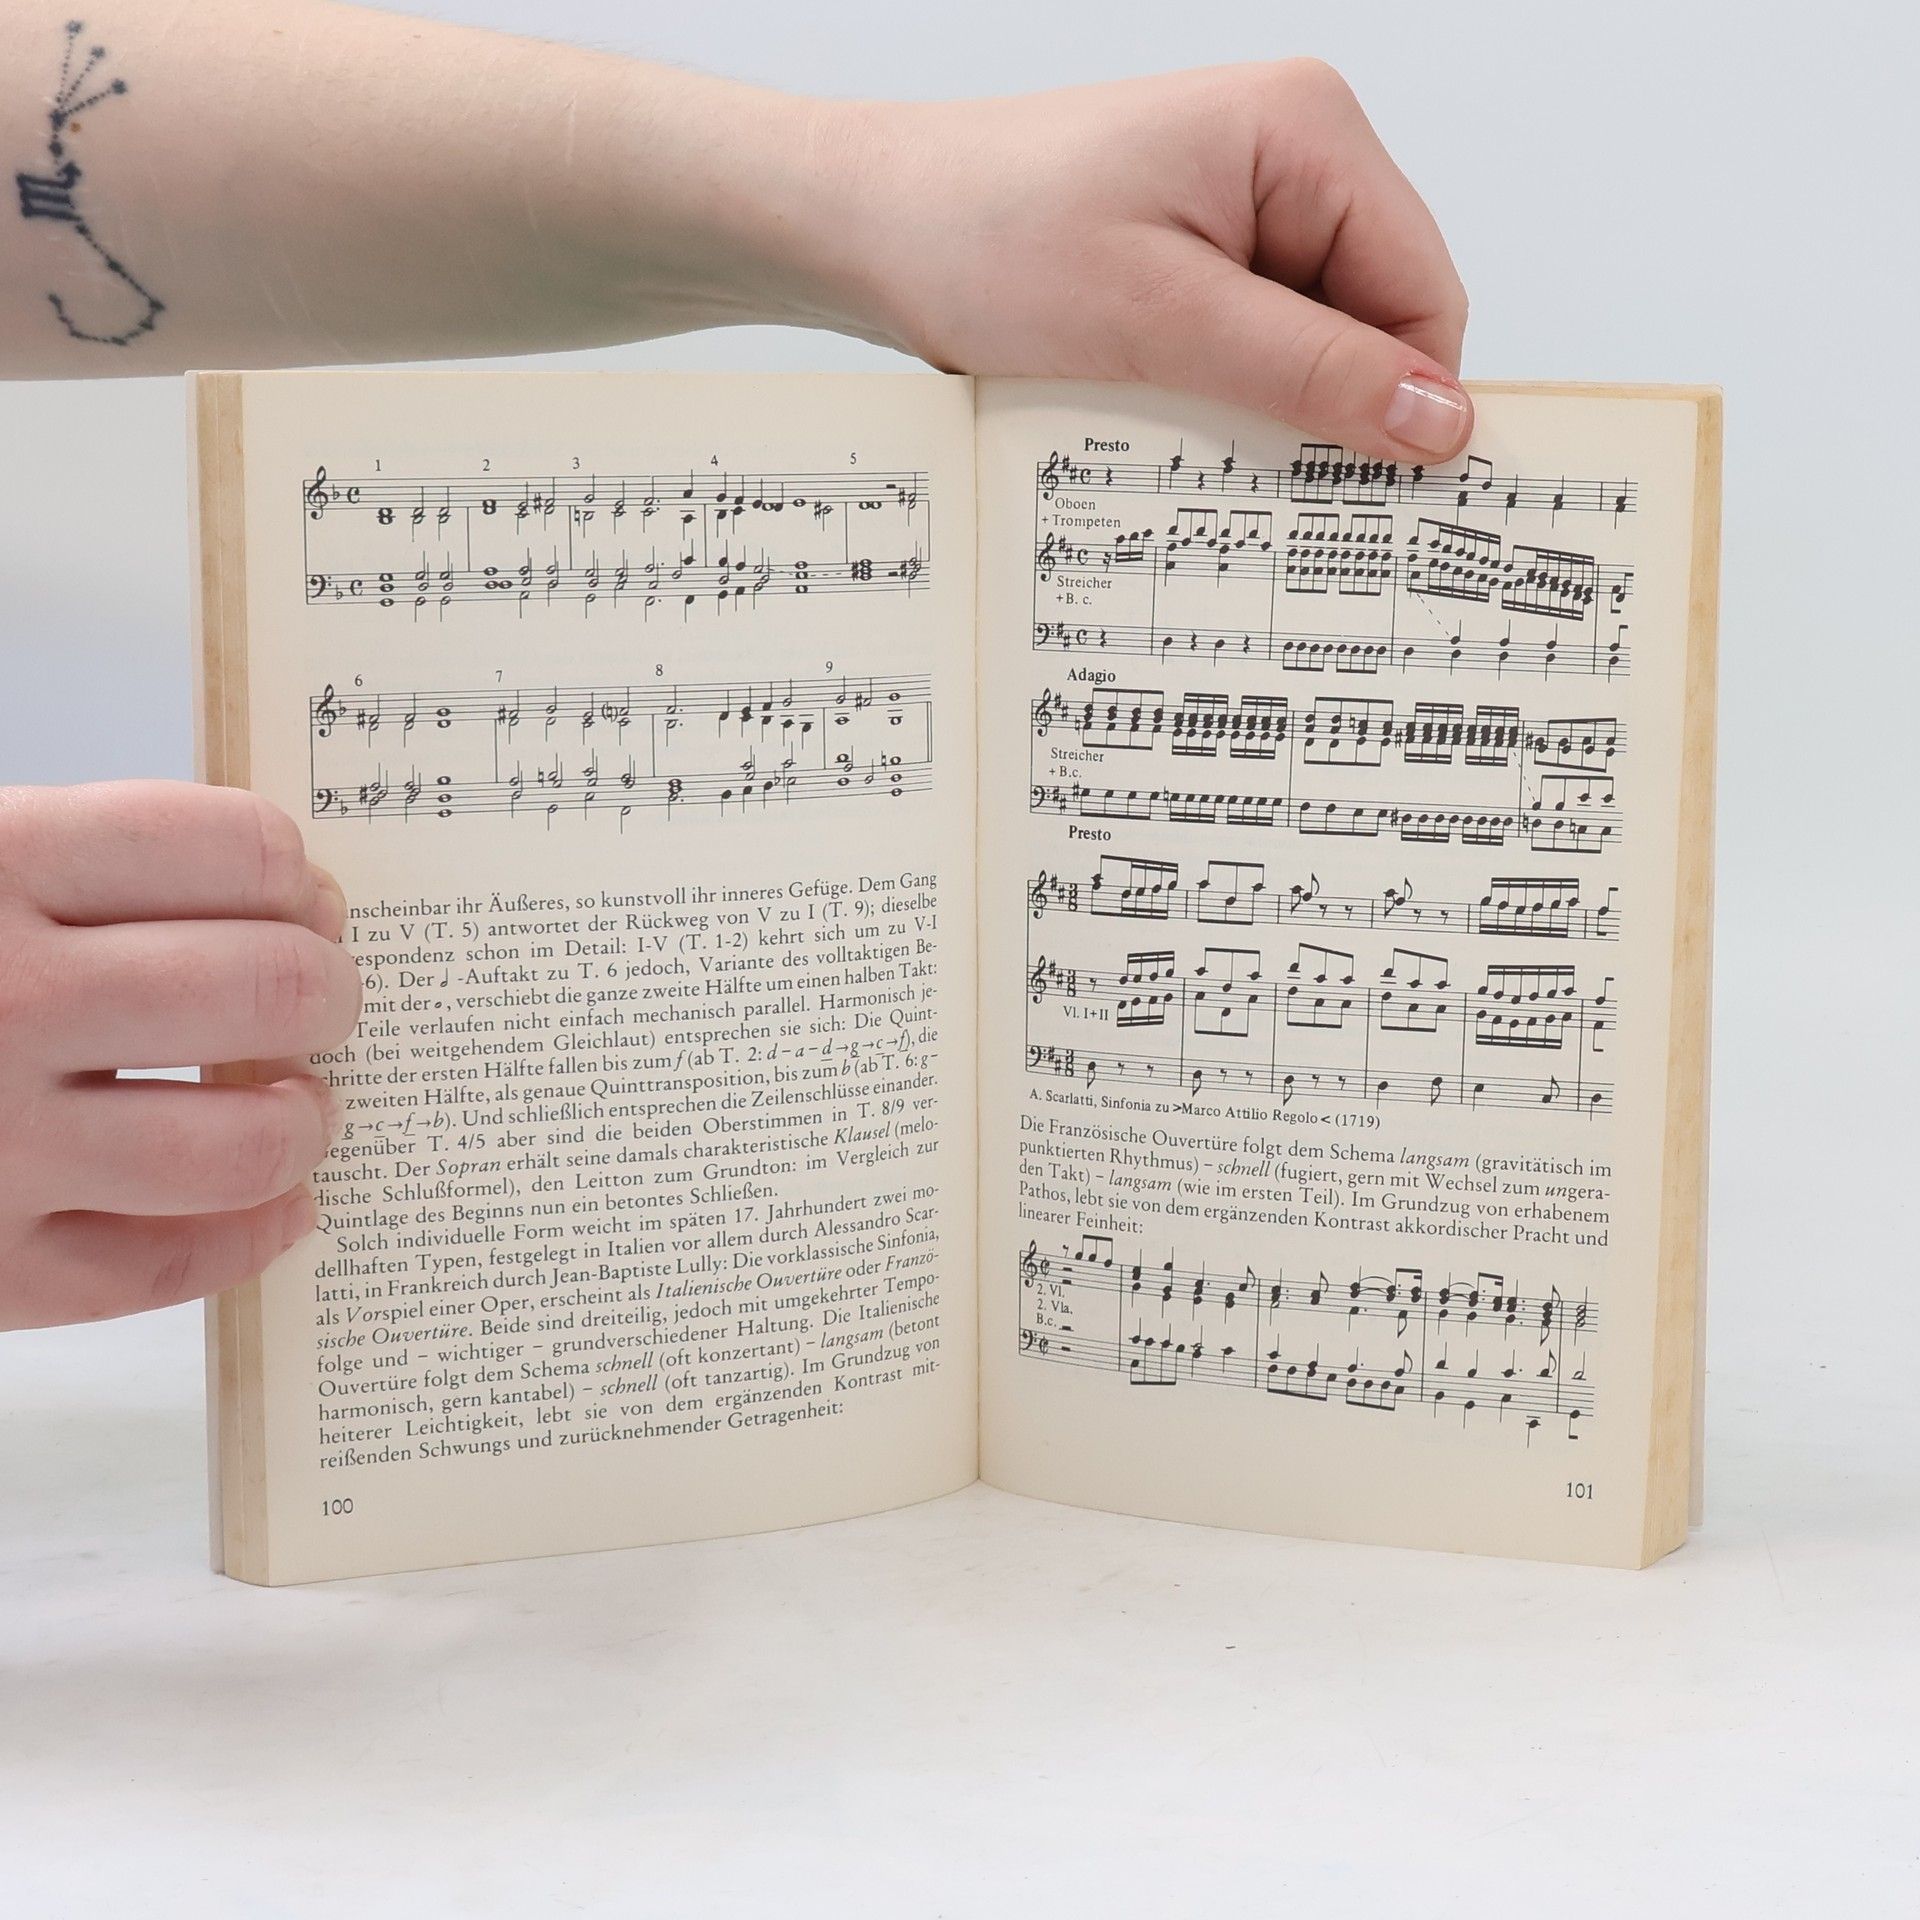 1 2 3 4 5
6 7 8 9
nscheinbar ihr Äußeres, so kunstvoll ihr inneres Gefüge. Dem Gang
I zu V (T. 5) antwortet der Rückweg von V zu I (T. 9); dieselbe
respondenz schon im Detail: I-V (T. 1-2) kehrt sich um zu V-I
-6). Der 𝅗𝅥 -Auftakt zu T. 6 jedoch, Variante des volltaktigen Be-
mit der 𝅝, verschiebt die ganze zweite Hälfte um einen halben Takt:
Teile verlaufen nicht einfach mechanisch parallel. Harmonisch je-
doch (bei weitgehendem Gleichlaut) entsprechen sie sich: Die Quint-
schritte der ersten Hälfte fallen bis zum f (ab T. 2: d – a – d → g → c → f), die
zweiten Hälfte, als genaue Quinttransposition, bis zum b (ab T. 6: g –
g → c → f → b). Und schließlich entsprechen die Zeilenschlüsse einander.
Gegenüber T. 4/5 aber sind die beiden Oberstimmen in T. 8/9 ver-
tauscht. Der Sopran erhält seine damals charakteristische Klausel (melo-
dische Schlußformel), den Leitton zum Grundton: im Vergleich zur
Quintlage des Beginns nun ein betontes Schließen.
Solch individuelle Form weicht im späten 17. Jahrhundert zwei mo-
dellhaften Typen, festgelegt in Italien vor allem durch Alessandro Scar-
latti, in Frankreich durch Jean-Baptiste Lully: Die vorklassische Sinfonia,
als Vorspiel einer Oper, erscheint als Italienische Ouvertüre oder Franzö-
sische Ouvertüre. Beide sind dreiteilig, jedoch mit umgekehrter Tempo-
folge und – wichtiger – grundverschiedener Haltung. Die Italienische
Ouvertüre folgt dem Schema schnell (oft konzertant) – langsam (betont
harmonisch, gern kantabel) – schnell (oft tanzartig). Im Grundzug von
heiterer Leichtigkeit, lebt sie von dem ergänzenden Kontrast mit-
reißenden Schwungs und zurücknehmender Getragenheit:
100
Presto
Oboen
+ Trompeten
Streicher
+ B. c.
Adagio
Streicher
+ B.c.
Presto
Vl. I+II
A. Scarlatti, Sinfonia zu >Marco Attilio Regolo< (1719)
Die Französische Ouvertüre folgt dem Schema langsam (gravitätisch im
punktierten Rhythmus) – schnell (fugiert, gern mit Wechsel zum ungera-
den Takt) – langsam (wie im ersten Teil). Im Grundzug von erhabenem
Pathos, lebt sie von dem ergänzenden Kontrast akkordischer Pracht und
linearer Feinheit:
2. Vl.
2. Vla.
B.c.
101